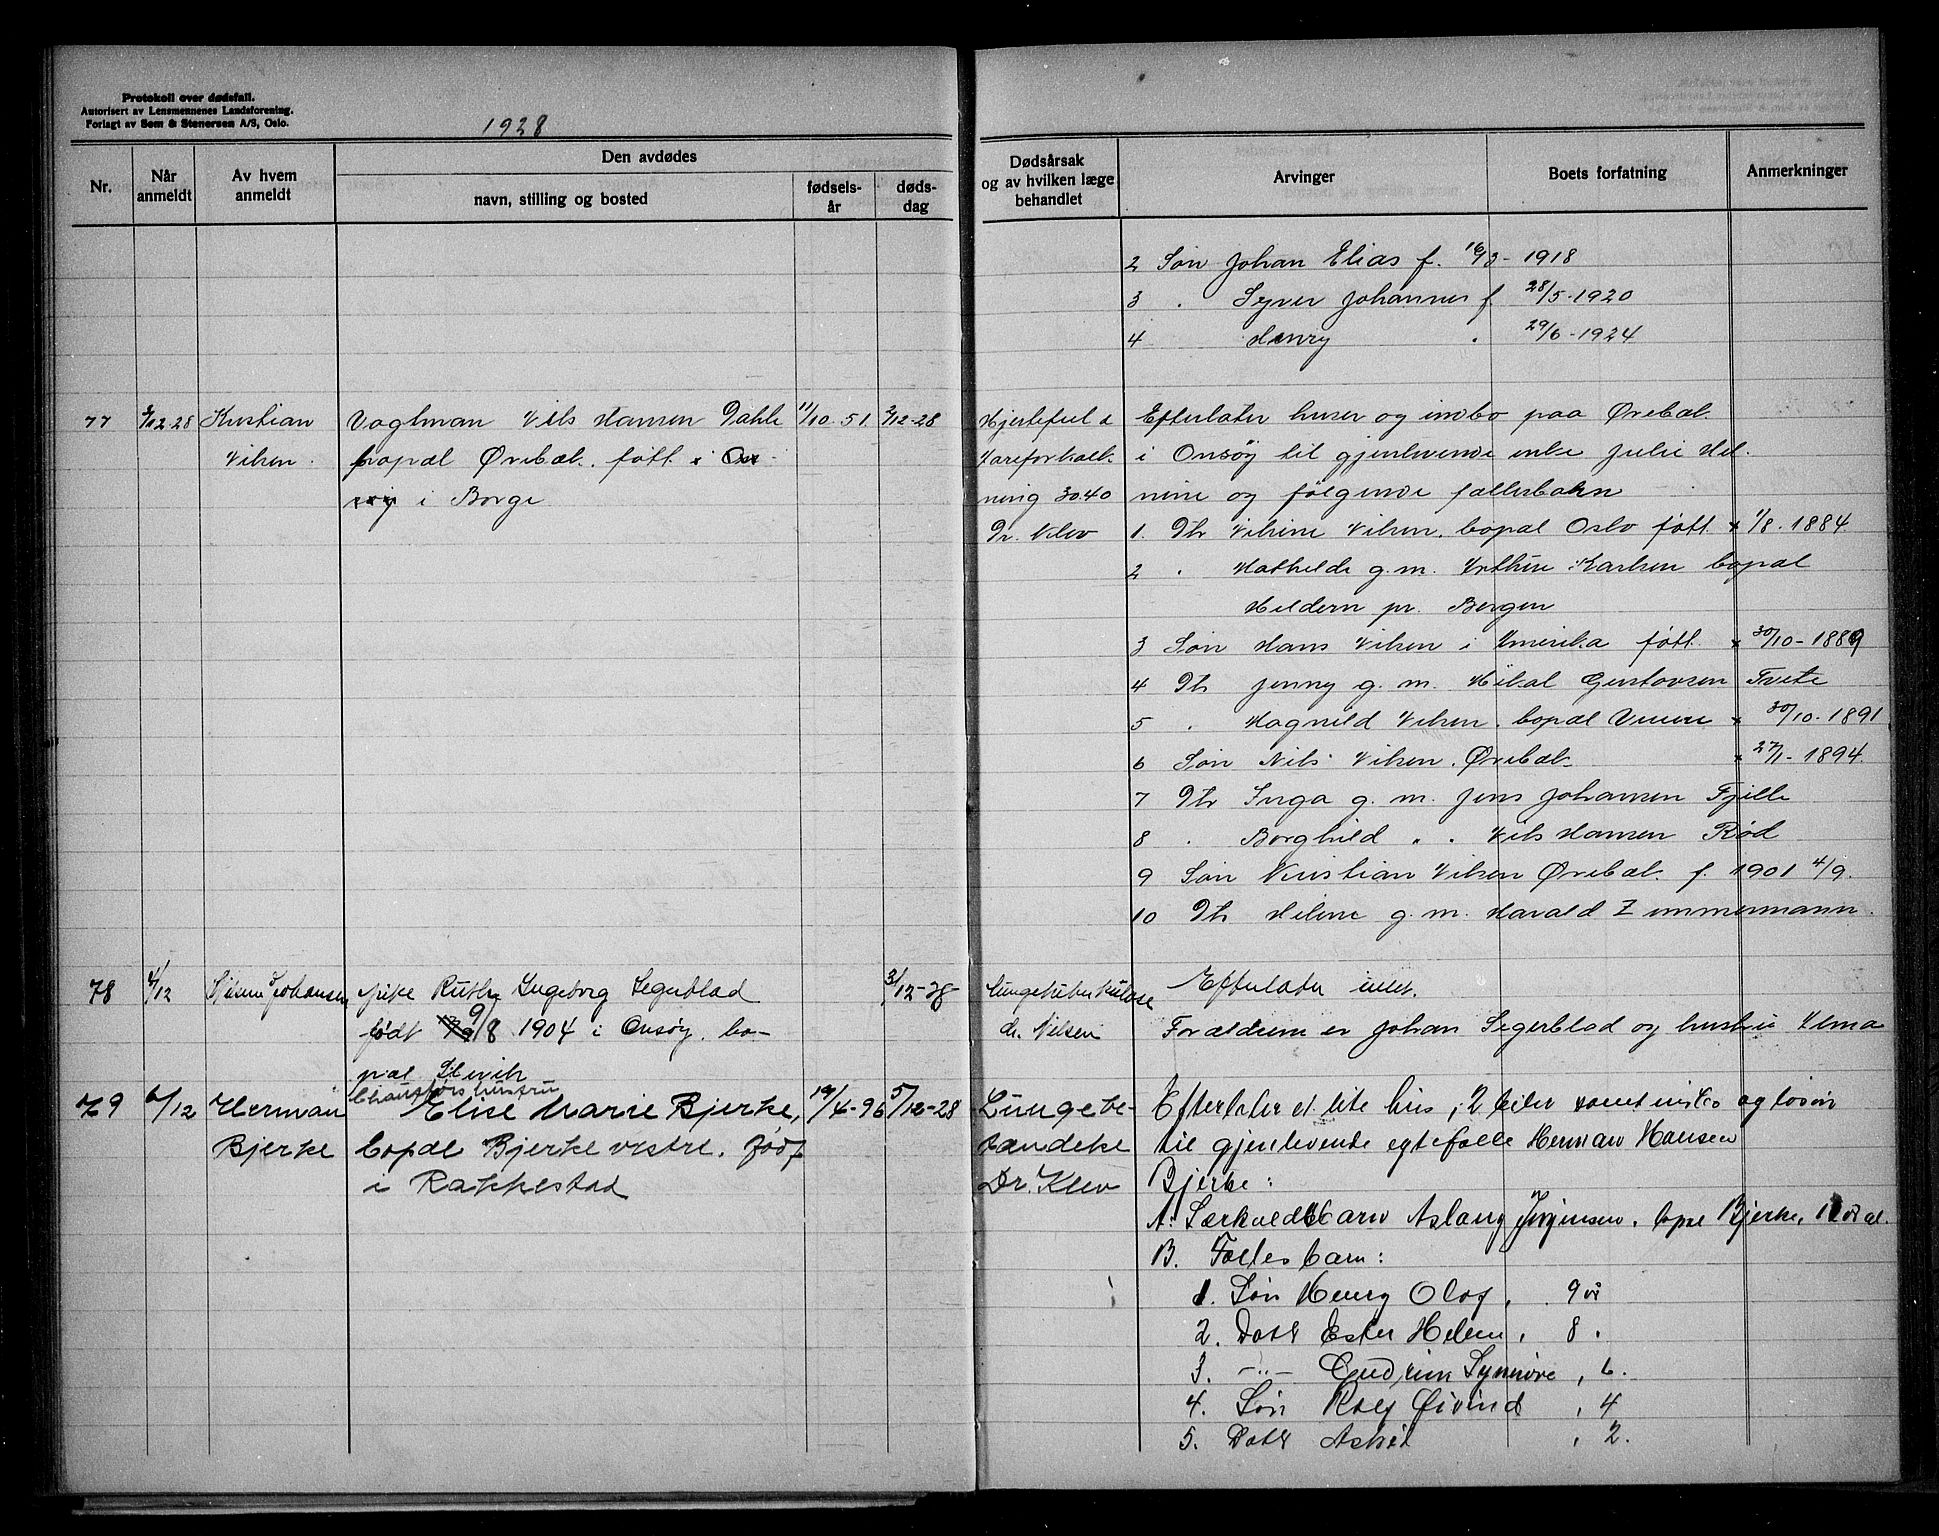 Protokoll over dødsfall.
Autorisert av Lensmennenes Landsforening.
Forlagt av Sem & Stenersen A/S, Oslo.
1928
Nr.
Når anmeldt
Av hvem anmeldt
Den avdødes
navn, stilling og bosted
fødsels-år
døds-dag
Dødsårsak og av hvilken læge behandlet
Arvinger
Boets forfatning
Anmerkninger
2 Søn Johan Elias f. 16/3 - 1918
3 . Syver Johannes f. 28/5-1920
4 Henry . 29/6-1924
77 3/12-28 Kristian Nilsen.
Vagtman Nils Hansen Dahle 11/10-51 2/12-28
bopæl Ørebæk. født i On-
søy i Borge
Hjertefeil &
Aareforkalk-
ning 30.40
Dr. Klev
Efterlater huser og inbo paa Ørebæk
i Onsøy til gjenlevende enke Julie Hel-
mine og følgende fællesbarn
1. Dtr Nilsine Nilsen. bopæl Oslo født 1/8-1884.
2 . Mathilde g.m. Arthur Karlsen bopæl
Hildern pr. Bergen
3 Søn Hans Nilsen i Amerika født 30/10-1889
4 Dtr Jenny g.m. Mikal Gustavsen Tvete
5 . Magnild Nilsen. bopæl 30/10-1891
6 Søn Nils Nilsen. Ørebæk 27/1-1894.
7 Dtr Inga g.m. Jens Johansen Fjelle
8 . Borghild . . Nils Hansen Rød
9 Søn Kristian Nilsen Ørebæk f. 1901 4/9.
10 Dtr Helene g.m. Harald Zimmermann.
78 4/12 Johansen
Pike Ruth Ingeborg Segerblad 3/12-28
født 9/8 1904 i Onsøy. bo-
pæl Slevik
Lungetuberkulose
dr. Nilsen
Efterlater intet.
Forældrene er Johan Segerblad og hustru Alma
79 6/12 Herman Bjerke
Chaufførs hustru
Elise Marie Bjerke, 19/4-96 5/12-28
bopæl Bjerke vestre. Født
i Rakkestad
Lungebe-
tændelse
Dr. Klev
Efterlater et lite hus, 2 biler samt indbo og løsøre
til gjenlevende egtefælle Herman Hansen
Bjerke:
A. Særkuldbarn Aslaug Jørgensen, bopæl Bjerke, 11 år gl.
B. Fællesbarn:
1. Søn Henry Olaf, 9 år
2. Datter Ester Helene, 8 .
3. -"- Gudrun Synnøve, 6.
4. Søn Rolf Øivind, 4
5. Datter Astrid, 2.